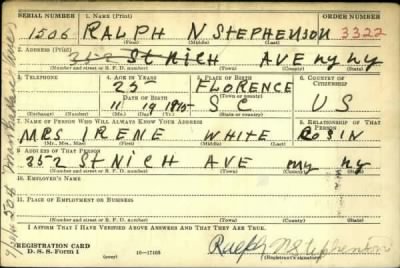 SERIAL NUMBER 1. NAME (Print) ORDER NUMBER
1506 RALPH N STEPHENSON 3322
2. ADDRESS (Print)
352 St NICH AVE NY NY
(Number and street or R. F. D. number) (Town) (County) (State)
3. TELEPHONE 4. AGE IN YEARS 5. PLACE OF BIRTH 6. COUNTRY OF CITIZENSHIP
25 FLORENCE
DATE OF BIRTH (Town or county)
11 19 1915 S C U S
(Exchange) (Number) (Mo.) (Day) (Yr.) (State or country)
7. NAME OF PERSON WHO WILL ALWAYS KNOW YOUR ADDRESS 8. RELATIONSHIP OF THAT PERSON
MRS IRENE WHITE COSIN
(Mr., Mrs., Miss) (First) (Middle) (Last)
9. ADDRESS OF THAT PERSON
352 St NICH AVE my ny
(Number and street or R. F. D. number) (Town) (County) (State)
10. EMPLOYER'S NAME
11. PLACE OF EMPLOYMENT OR BUSINESS
(Number and street or R. F. D. number) (Town) (County) (State)
I AFFIRM THAT I HAVE VERIFIED ABOVE ANSWERS AND THAT THEY ARE TRUE.
REGISTRATION CARD
D. S. S. Form 1 16-17105 Ralph N Stephenson
(Registrant's signature)